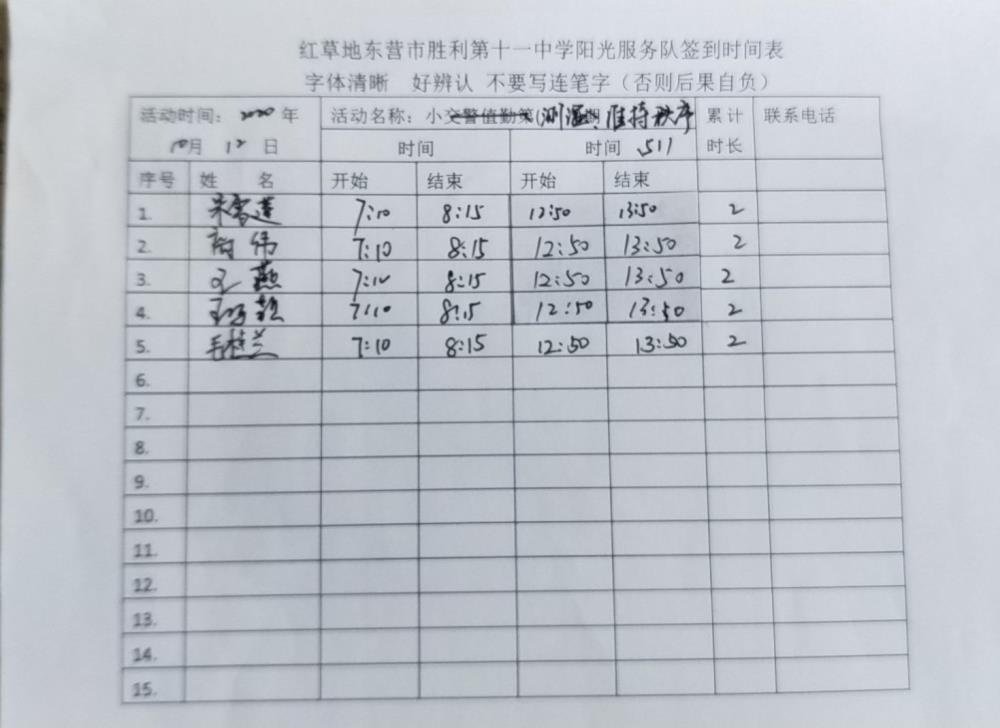 红草地东营市胜利第十一中学阳光服务队签到时间表
字体清晰 好辨认 不要写连笔字（否则后果自负）
活动时间：2020年 活动名称：小交警值勤第(测温、维持秩序 累计 联系电话
10月 12 日 时间 时间 511 时长
序号 姓 名 开始 结束 开始 结束
1. 7:10 8:15 12:50 13:50 2
2. 伟 7:10 8:15 12:50 13:50 2
3. 燕 7:10 8:15 12:50 13:50 2
4. 7:10 8:15 12:50 13:50 2
5. 毛桂兰 7:10 8:15 12:50 13:50 2
6.
7.
8.
9.
10.
11.
12.
13.
14.
15.